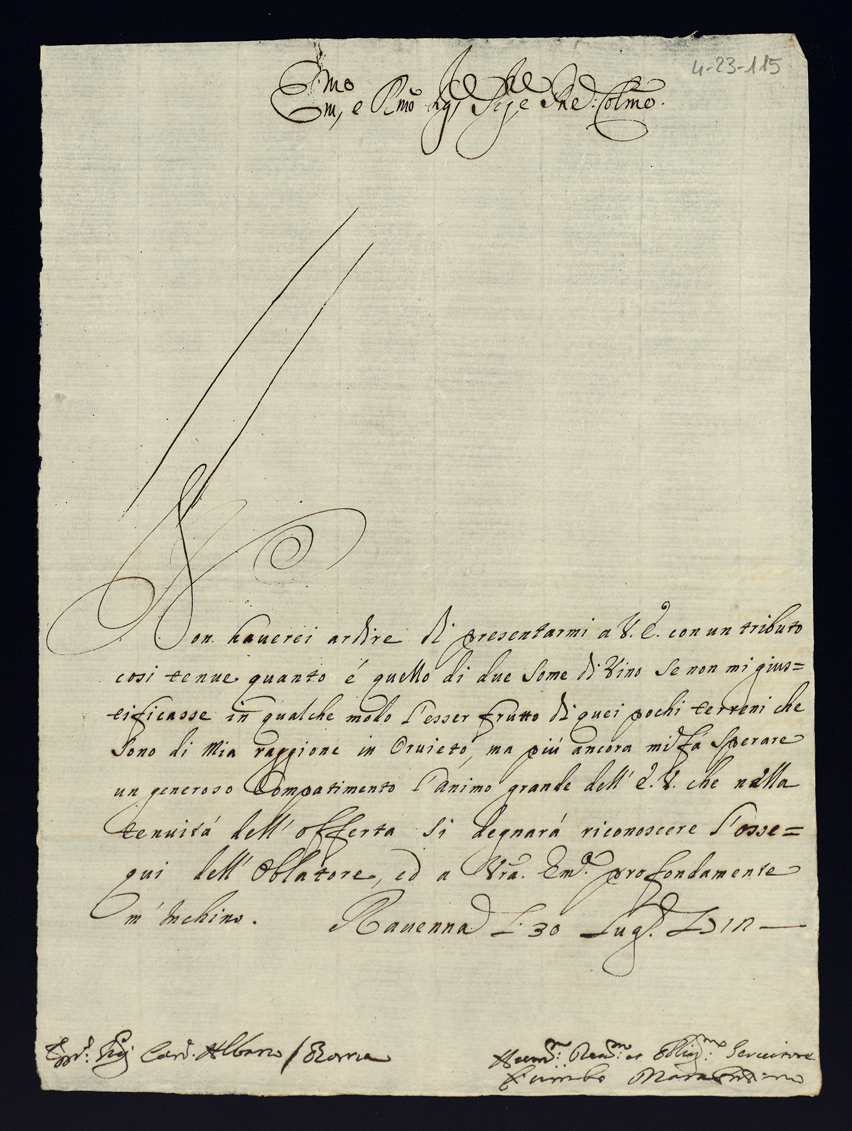 4-23-115
Em̃o, e Rmõ Sig.r Sig.r e Pne Colmõ.
Non hauerei ardire di presentarmi a V. E. con un tributo
cosi tenue quanto é quello di due Some di Vino se non mi gius=
tificasse in qualche modo l'esser frutto di quei pochi terreni che
sono di mia raggione in Orvieto, ma più ancora mi fà sperare
un generoso Compatimento l'animo grande dell' E. V. che nella
tenuitá dell' offerta si degnará riconoscere l'osse=
qui dell' Oblatore, ed a Vra. Em.a profondamente
m' Inchino. Ravenna L: 30 Lugl.
Sig. Card. Albano / Roma
Hum. Deu. et Obblig. Seruitore